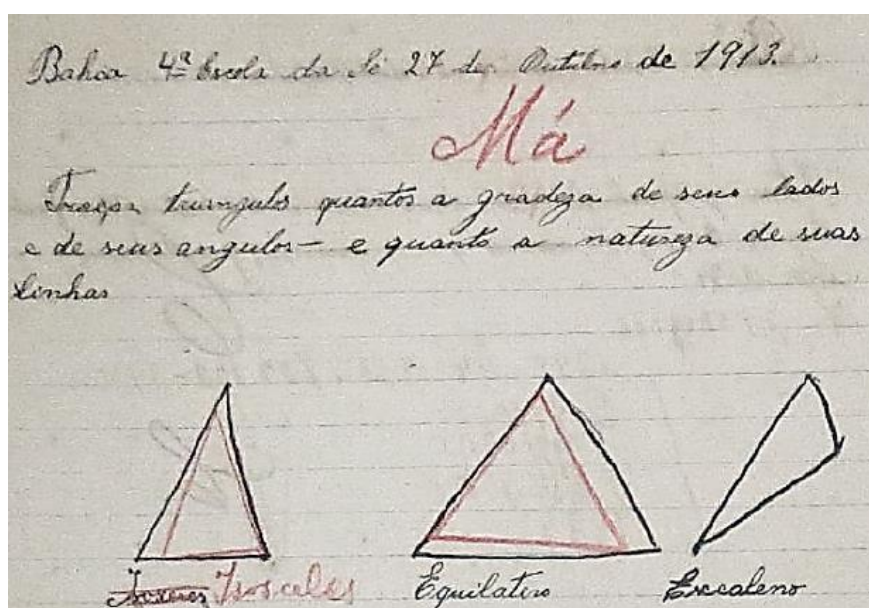 Bahia 4ª Escola da Sé 27 de Outubro de 1913.
Má
Traçar triangulos quantos a gradeza de seus lados
e de seus angulos - e quanto a natureza de suas
linhas
Isosceles Equilatero Escaleno